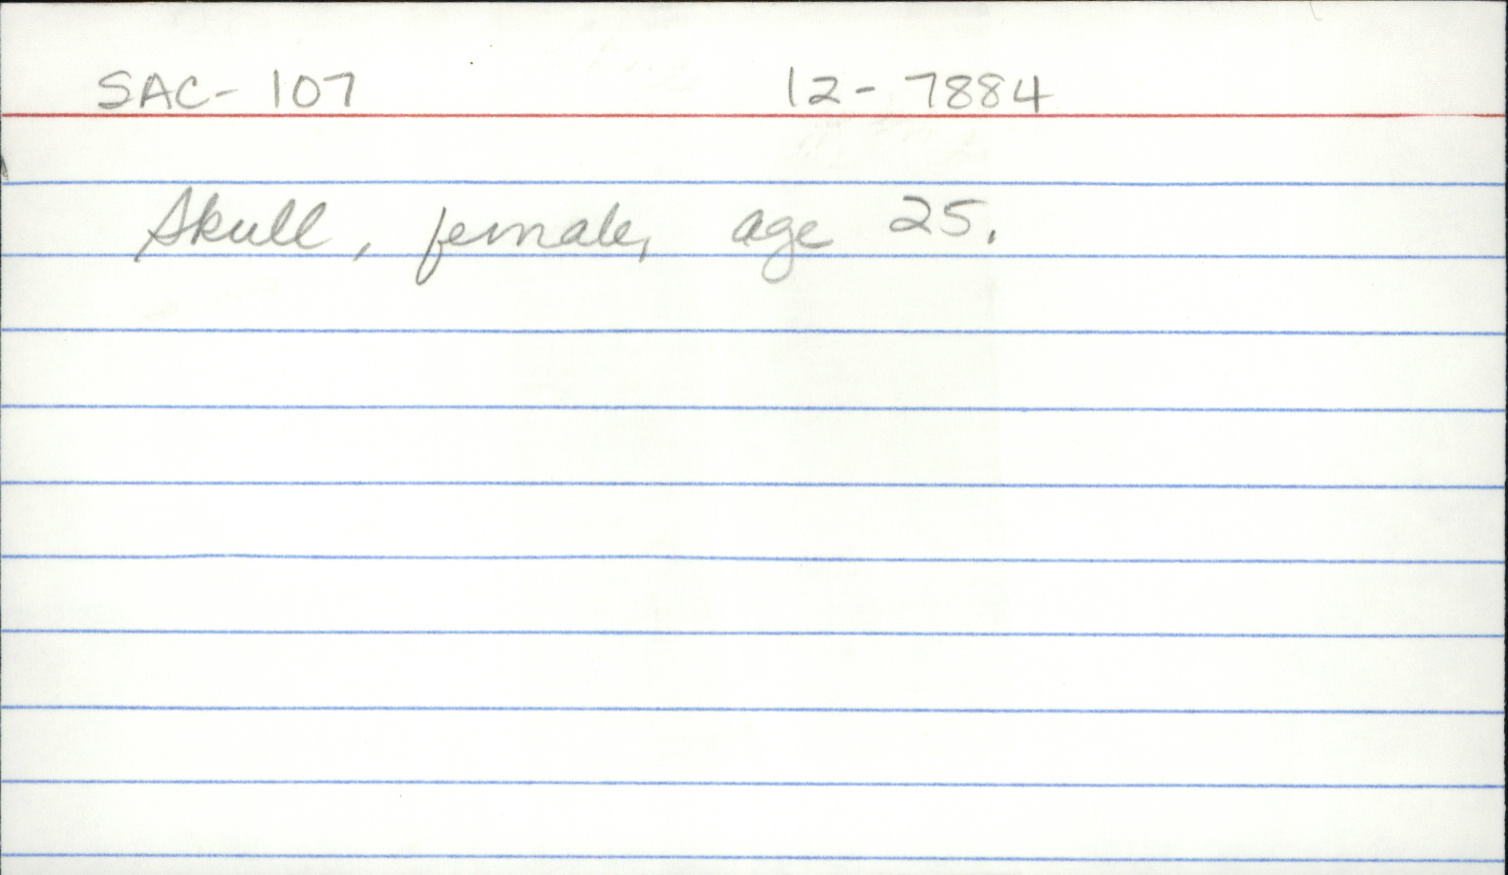 SAC- 107 12- 7884
Skull, female, age 25.